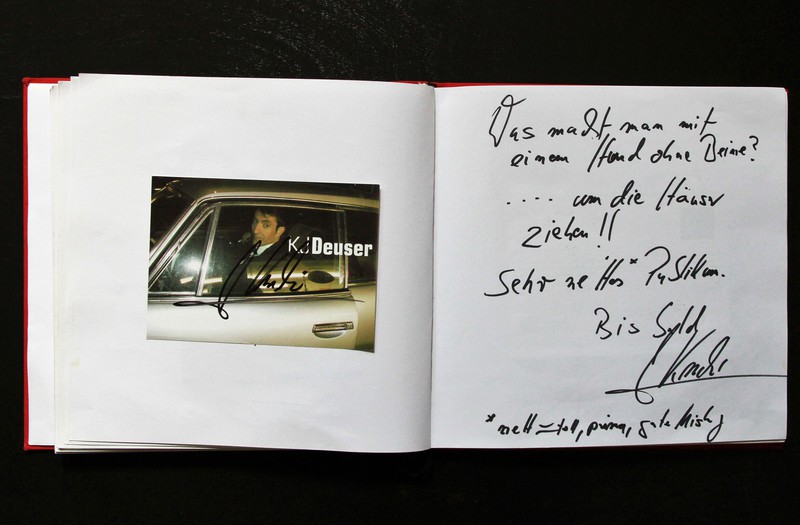 K.J. Deuser
Was macht man mit
einem Hund ohne Beine?
.... um die Häuser
ziehen!!
Sehr nettes* Publikum.
Bis Sylt
*nett = toll, prima, gute Mischg